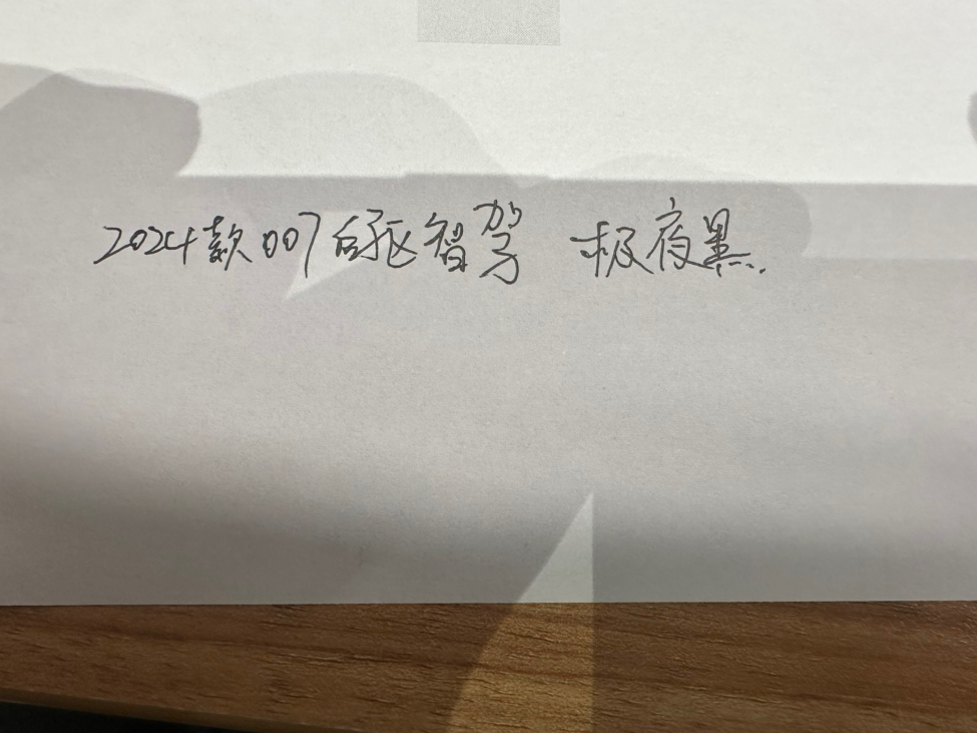 2024款007后驱智驾 极夜黑